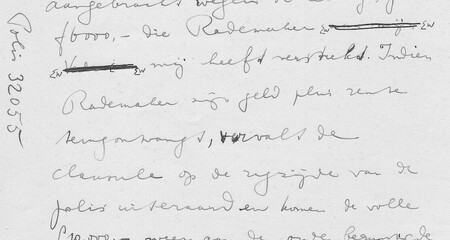 Polis 32055
aangebracht wegens de
f6000,- die Rademaker
mij heeft verstrekt. Indien
Rademaker mijn geld plus rente
terugontvangt, vervalt de
clausule op de rugzijde van de
polis uiteraard en komen de volle